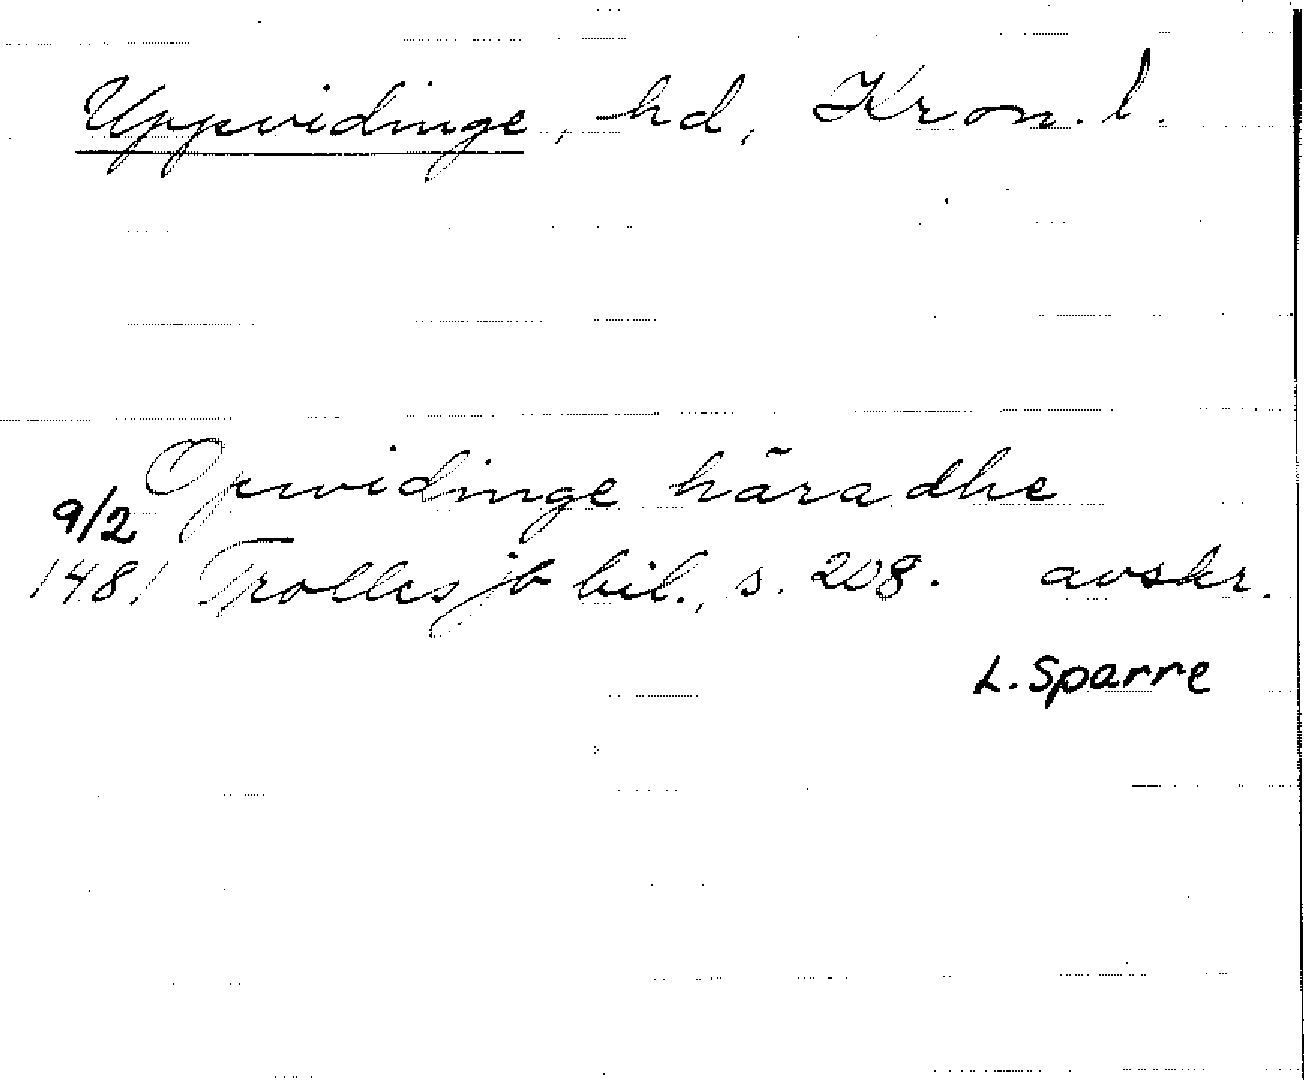 Uppvidinge, hd, Kron. l.
Opvidinge häradhe
9/2
1481 Trolles jb bil., s. 208. avskr.
L. Sparre